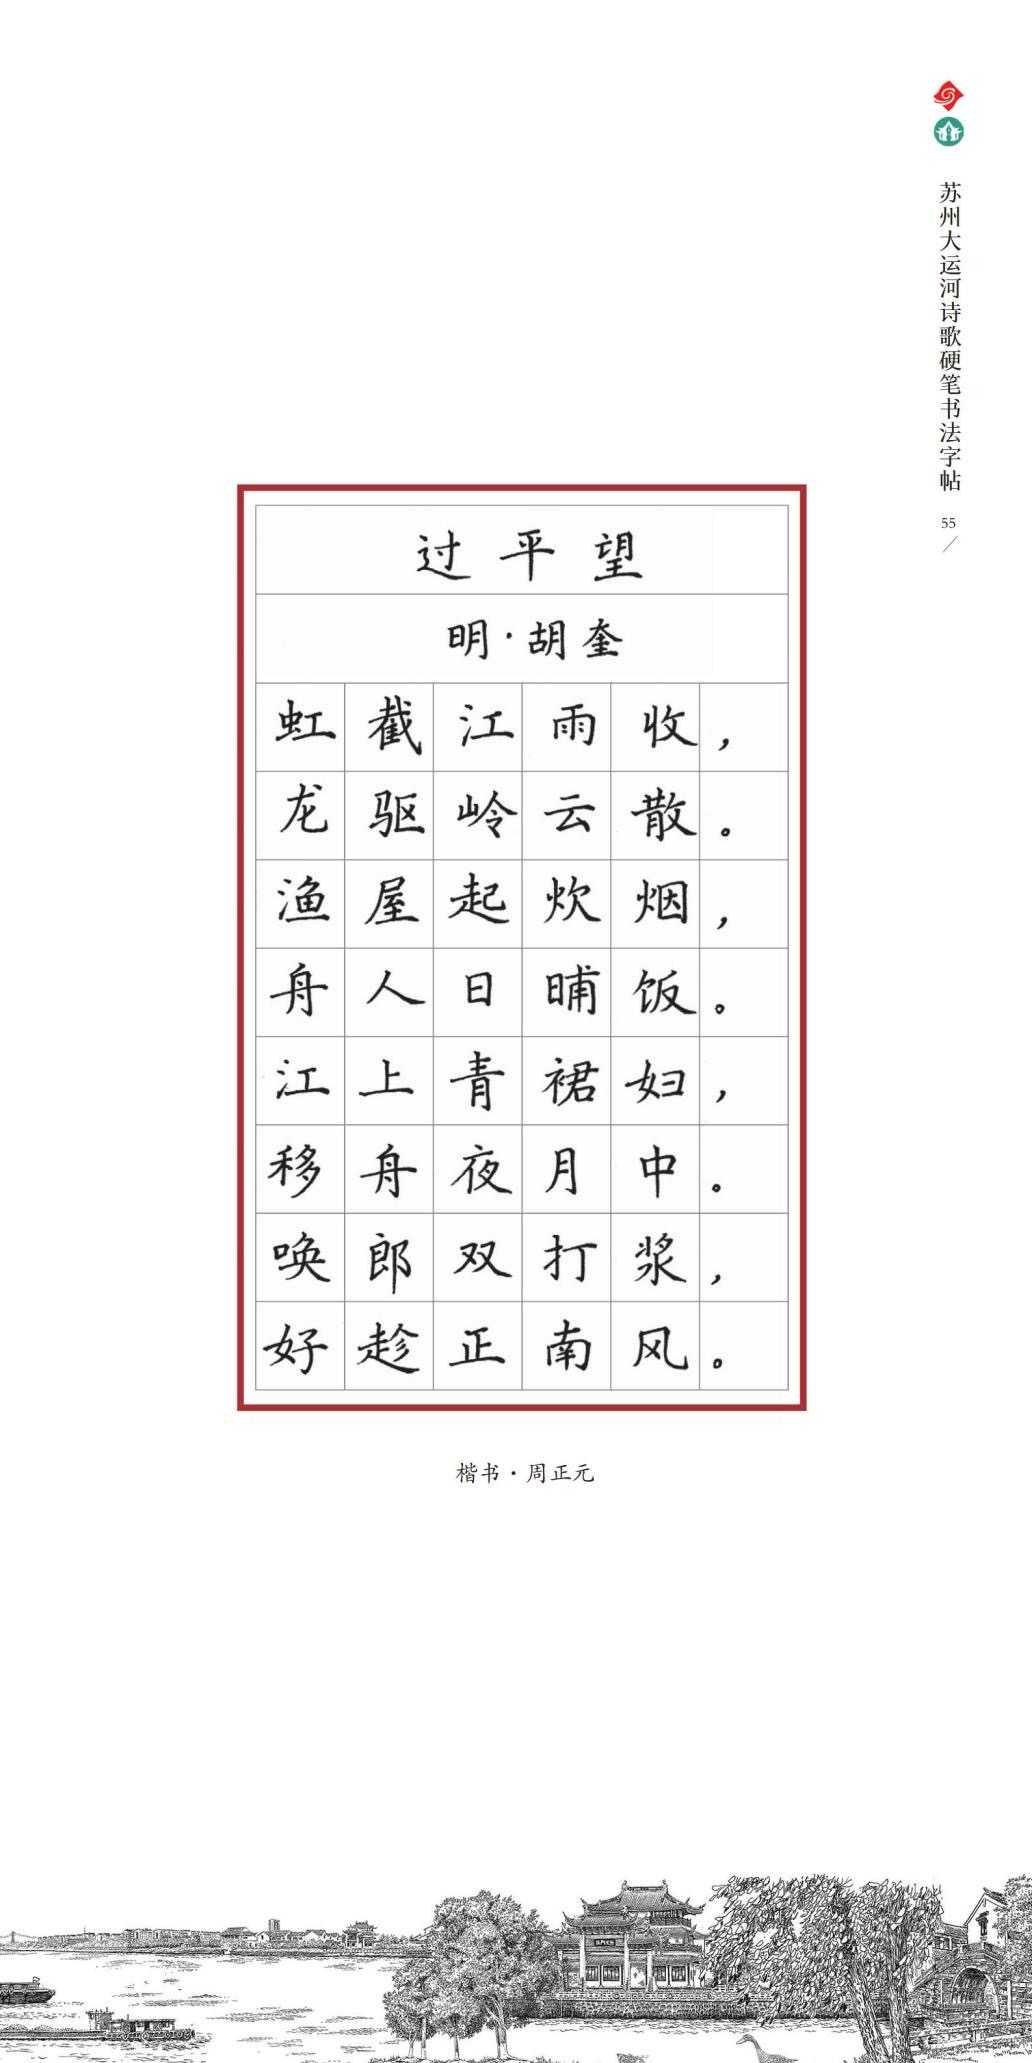 苏州大运河诗歌硬笔书法字帖
55
过平望
明·胡奎
虹截江雨收，
龙驱岭云散。
渔屋起炊烟，
舟人日晡饭。
江上青裙妇，
移舟夜月中。
唤郎双打浆，
好趁正南风。
楷书·周正元